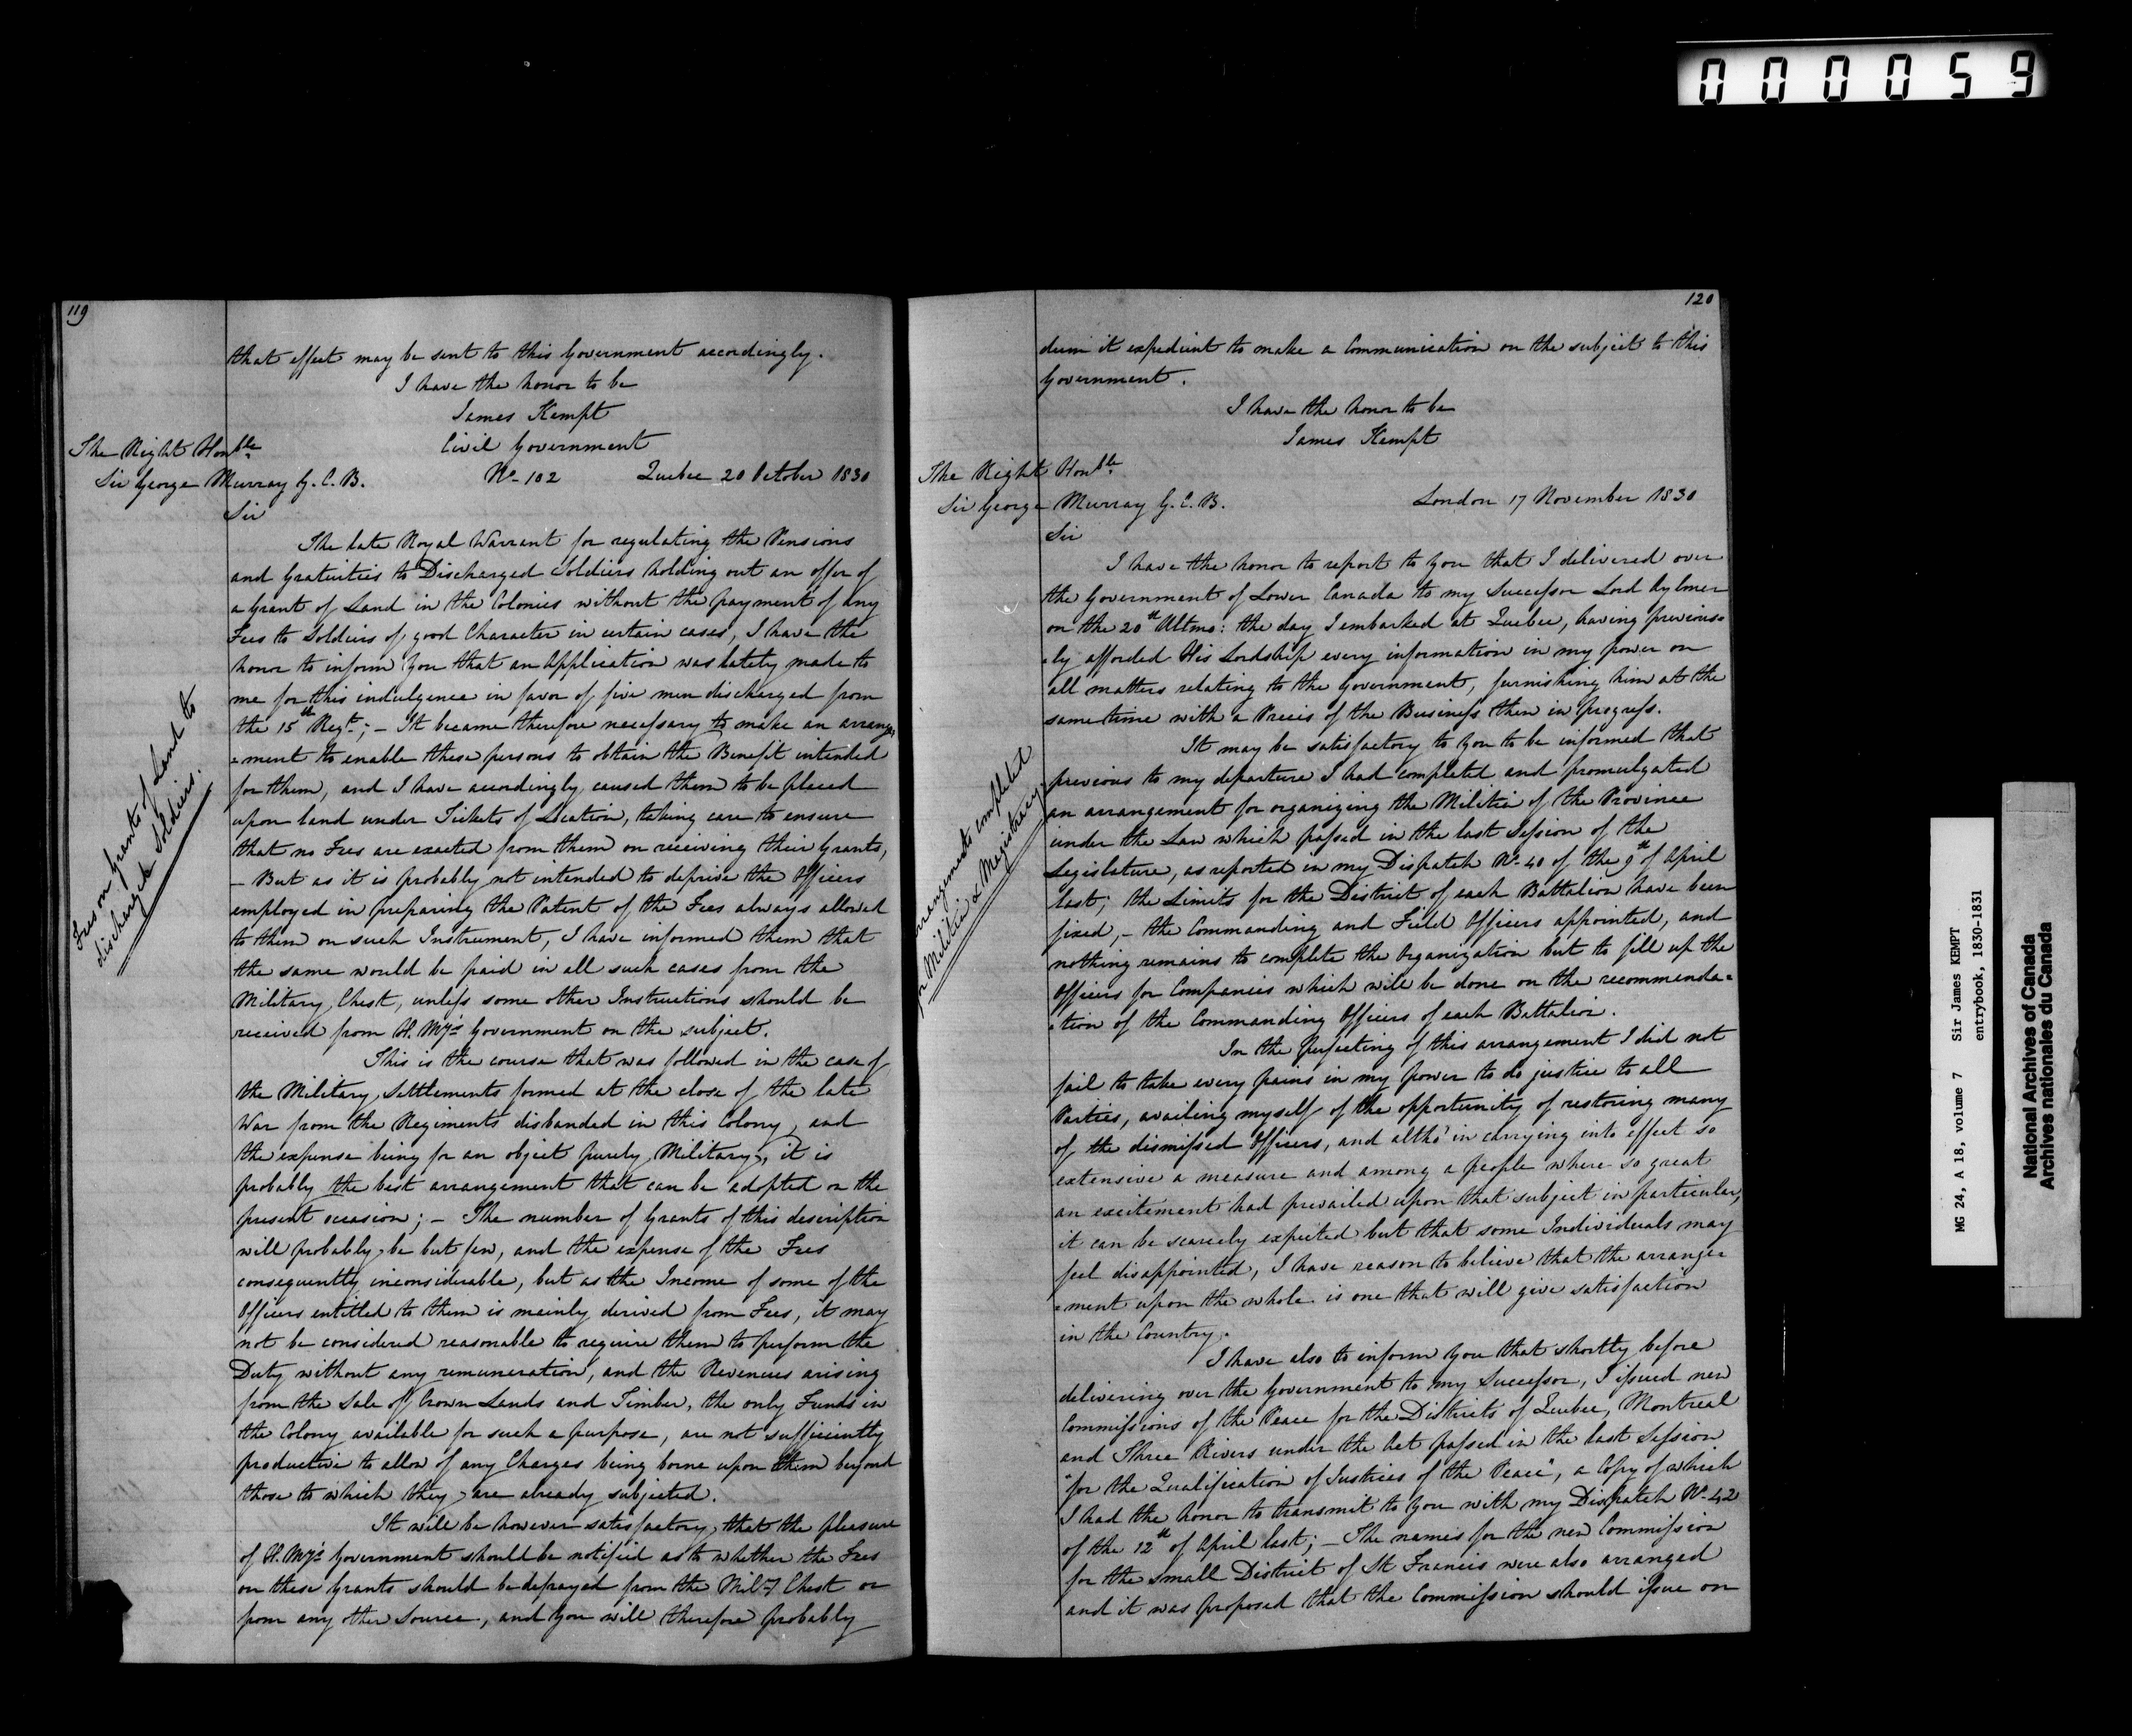 000059
119
that effect may be sent to this Government accordingly.
I have the honor to be
James Kempt
The Right Honble
Civil Government
Sir George Murray G.C.B.
No. 102 Quebec 20 October 1830
Sir
The late Royal Warrant for regulating the Pensions
and Gratuities to Discharged Soldiers holding out an offer of
a Grant of Land in the Colonies without the payment of any
Fees to Soldiers of good Character in certain cases, I have the
honor to inform you that an application was lately made to
me for this indulgence in favor of five men discharged from
the 15th Regt; – It became therefore necessary to make an arrange=
=ment to enable these persons to obtain the Benefit intended
for them, and I have accordingly caused them to be placed
upon land under Tickets of Location, taking care to ensure
that no Fees are exacted from them on receiving their Grants,
– But as it is probably not intended to deprive the Officers
employed in preparing the Patent of the Fees always allowed
to them on such Instrument, I have informed them that
the same would be paid in all such cases from the
Military Chest, unless some other Instructions should be
received from H. My's Government on the subject.
Fees on Grants of Land to
discharged Soldiers.
This is the course that was followed in the case of
the Military Settlements formed at the close of the late
War from the Regiments disbanded in this Colony, and
the expense being for an object purely Military, it is
probably the best arrangement that can be adopted on the
present occasion; – The number of Grants of this description
will probably be but few, and the expense of the Fees
consequently inconsiderable, but as the Income of some of the
Officers entitled to them is mainly derived from Fees, it may
not be considered reasonable to require them to perform the
Duty without any remuneration, and the Revenues arising
from the Sale of Crown Lands and Timber, the only Funds in
the Colony available for such a purpose, are not sufficiently
productive to allow of any Charges being borne upon them beyond
those to which they are already subjected.
It will be however satisfactory that the pleasure
of H. My's Government should be notified as to whether the Fees
on these Grants should be defrayed from the Mily Chest or
from any other source, and you will therefore probably
120
deem it expedient to make a Communication on the subject to this
Government.
I have the honor to be
James Kempt
The Right Honble
Sir George Murray G.C.B.
London 17 November 1830
Sir
I have the honor to report to you that I delivered over
the Government of Lower Canada to my Successor Lord Aylmer
on the 20th Ultmo: the day I embarked at Quebec, having previous=
=ly afforded His Lordship every information in my power on
all matters relating to the Government, furnishing him at the
same time with a Precis of the Business then in progress.
It may be satisfactory to you to be informed that
previous to my departure I had completed and promulgated
an arrangement for organizing the Militia of the Province
under the Law which passed in the last Session of the
Legislature, as reported in my Dispatch No. 40 of the 9th of April
last; the Limits for the District of each Battalion have been
fixed, – the Commanding and Field Officers appointed, and
nothing remains to complete the Organization but to fill up the
Officers for Companies which will be done on the recommenda=
=tion of the Commanding Officers of each Battalion.
rrangements completed
for Militia & Magistracy
In the perfecting of this arrangement I did not
fail to take every pains in my power to do justice to all
Parties, availing myself of the opportunity of restoring many
of the dismissed Officers, and altho' in carrying into effect so
extensive a measure and among a people where so great
an excitement had prevailed upon that subject in particular,
it can be scarcely expected but that some Individuals may
feel disappointed, I have reason to believe that the arrange=
=ment upon the whole is one that will give satisfaction
in the Country.
I have also to inform you that shortly before
delivering over the Government to my Successor, I issued new
Commissions of the Peace for the Districts of Quebec, Montreal
and Three Rivers under the Act passed in the last Session
"for the Qualification of Justices of the Peace", a Copy of which
I had the honor to transmit to you with my Dispatch No. 42
of the 12th of April last; – The names for the new Commission
for the small District of St Francis were also arranged
and it was proposed that the Commission should issue on
MG 24, A 18, volume 7 Sir James KEMPT
entrybook, 1830-1831
National Archives of Canada
Archives nationales du Canada